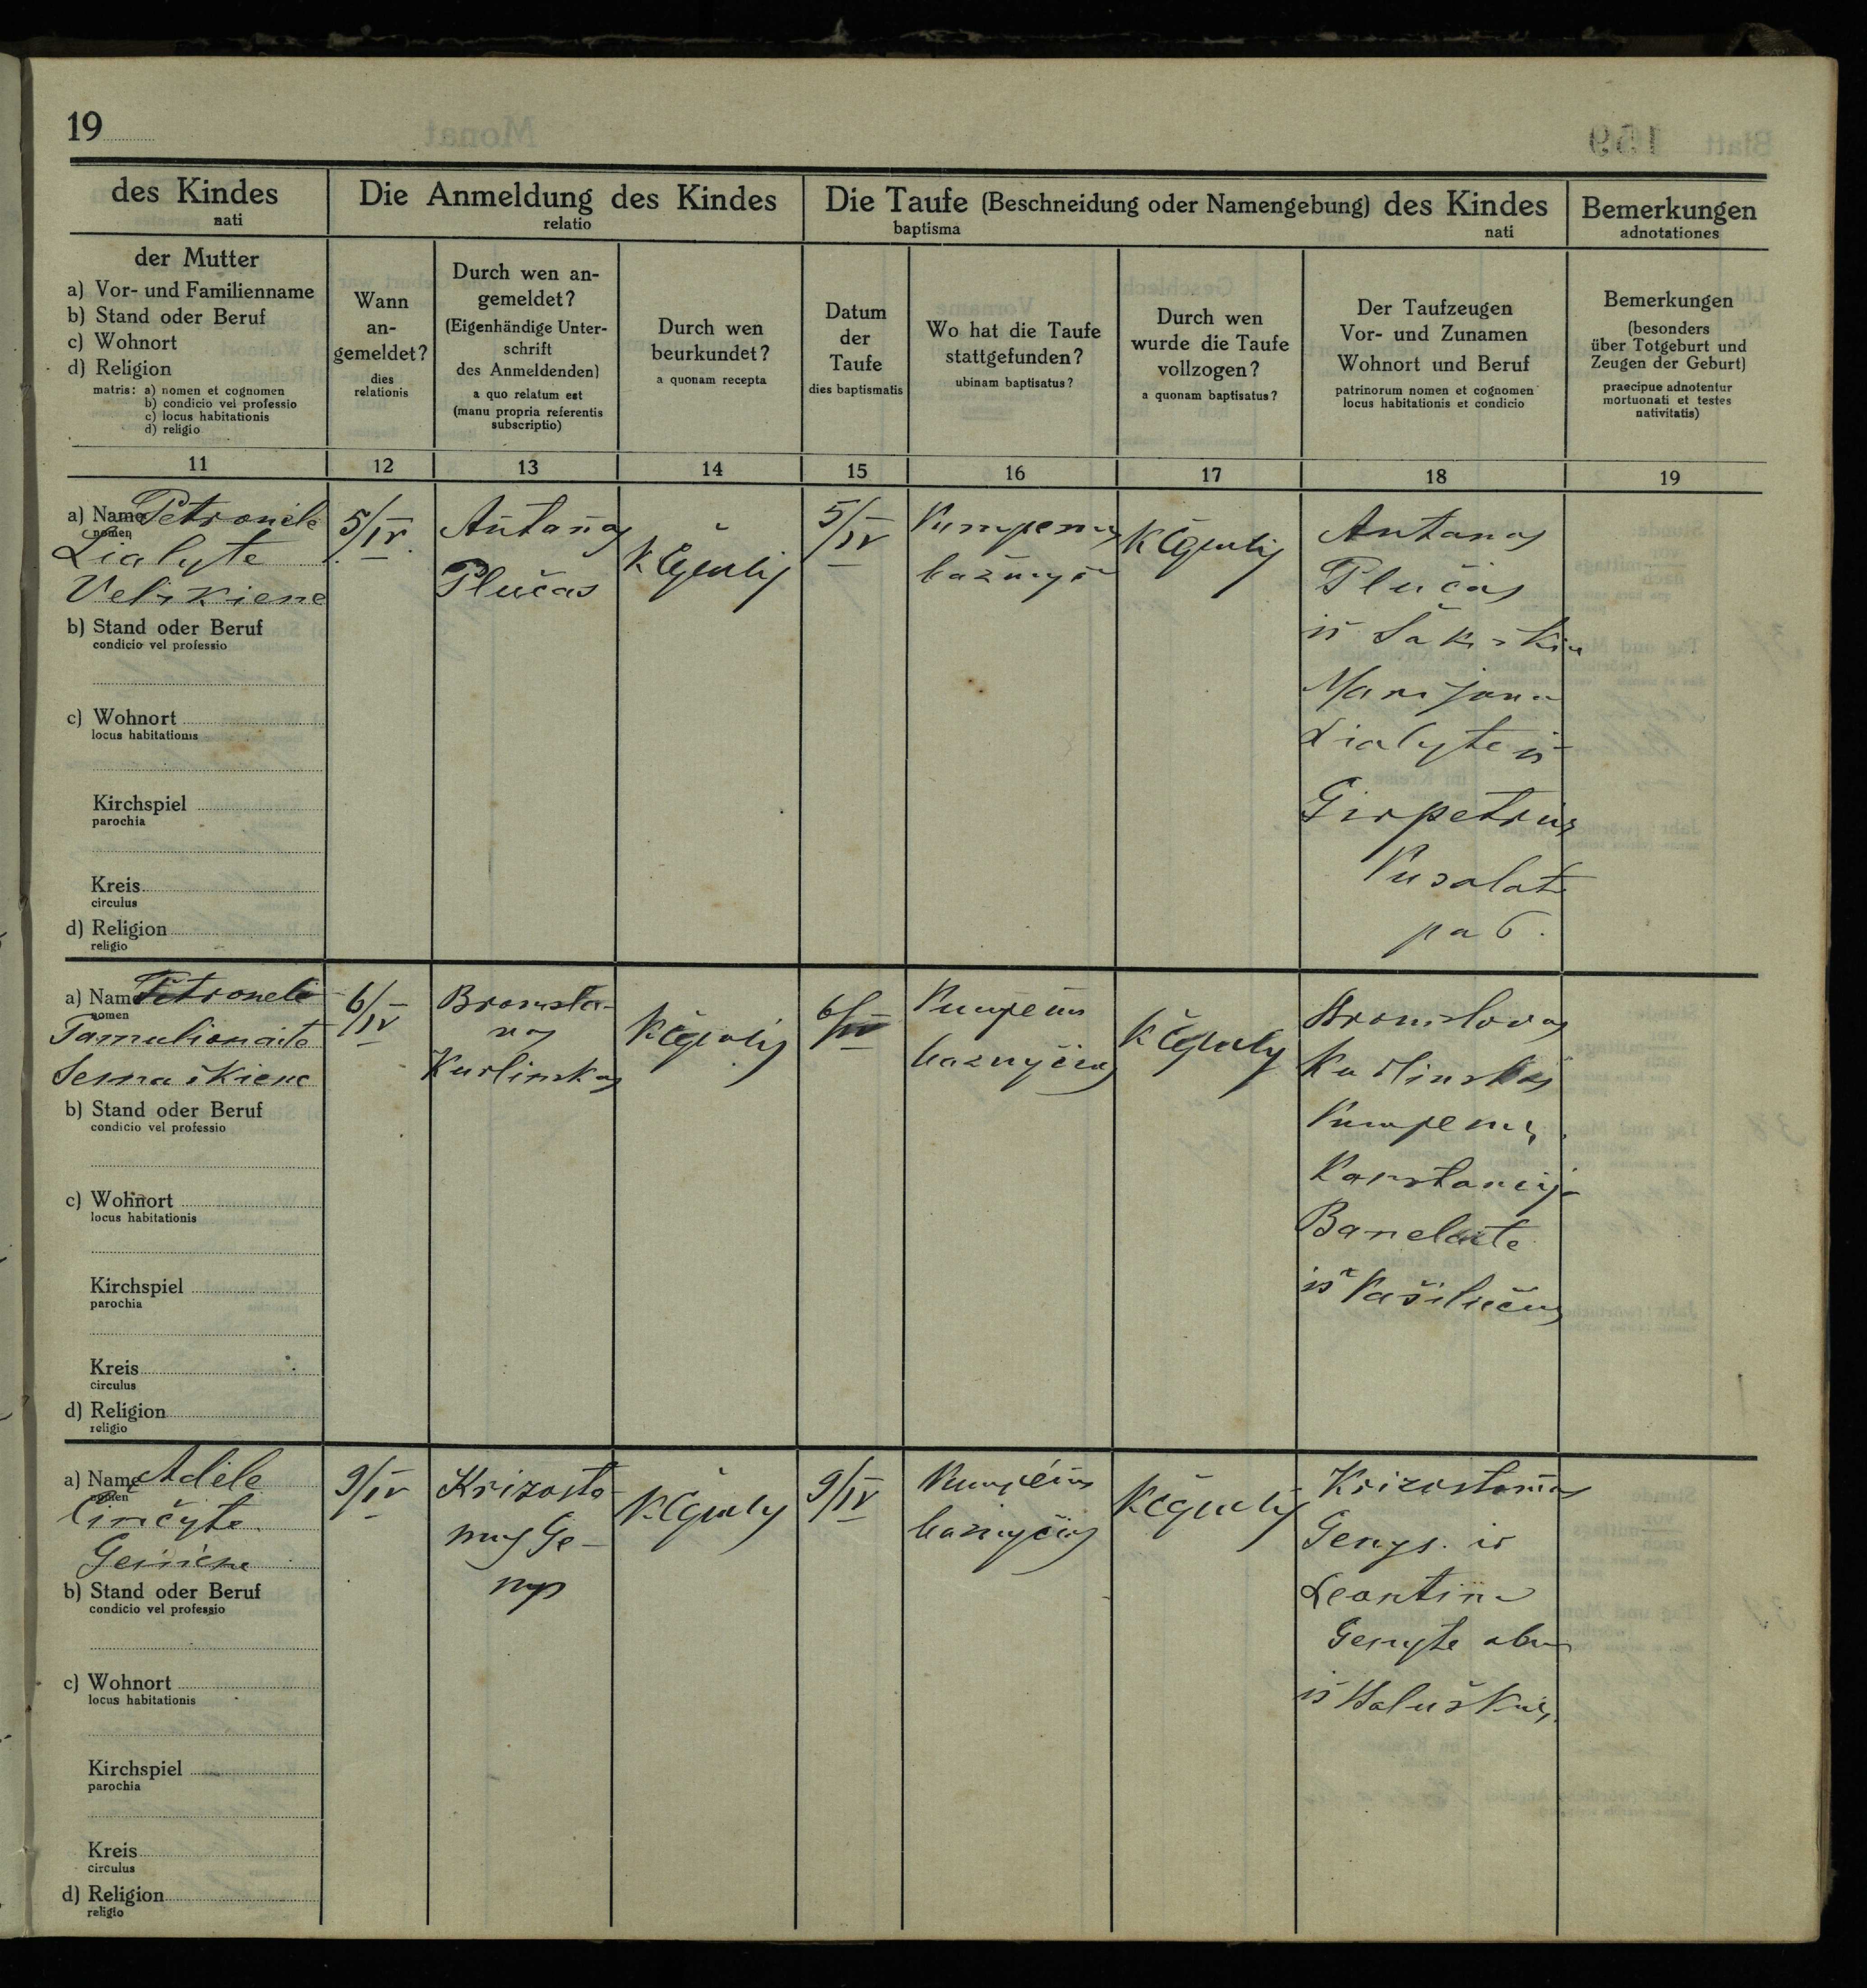 19
des Kindes
nati
Die Anmeldung des Kindes
relatio
Die Taufe (Beschneidung oder Namengebung) des Kindes
baptisma nati
Bemerkungen
adnotationes
der Mutter
a) Vor- und Familienname
b) Stand oder Beruf
c) Wohnort
d) Religion
matris: a) nomen et cognomen
b) condicio vel professio
c) locus habitationis
d) religio
Wann
an-
gemeldet?
dies
relationis
Durch wen an-
gemeldet?
(Eigenhändige Unter-
schrift
des Anmeldenden)
a quo relatum est
(manu propria referentis
subscriptio)
Durch wen
beurkundet?
a quonam recepta
Datum
der
Taufe
dies baptismatis
Wo hat die Taufe
stattgefunden?
ubinam baptisatus?
Durch wen
wurde die Taufe
vollzogen?
a quonam baptisatus?
Der Taufzeugen
Vor- und Zunamen
Wohnort und Beruf
patrinorum nomen et cognomen
locus habitationis et condicio
Bemerkungen
(besonders
über Totgeburt und
Zeugen der Geburt)
praecipue adnotentur
mortuonati et testes
nativitatis)
11 12 13 14 15 16 17 18 19
a) Name Petronele
nomen
Lialyte
Velikiene
b) Stand oder Beruf
condicio vel professio
c) Wohnort
locus habitationis
Kirchspiel
parochia
Kreis
circulus
d) Religion
religio
5/IV
Antanas
Plučas
5/IV
Antanas
Plučas
iš
Marijona
Lialyte iš
Girpetrių
Pusalat
par.
a) Name Petronele
nomen
Tamulionaite
Semaškiene
b) Stand oder Beruf
condicio vel professio
c) Wohnort
locus habitationis
Kirchspiel
parochia
Kreis
circulus
d) Religion
religio
6/IV
Bronislo-
vas
Kurlinskas
6/IV
Pumpėnų
bažnyčioj
Bronislovas
Kurlinskas
Pumpėnų
Konstancija
Banelaite
iš Vašiliečių
a) Name Adele
nomen
Cinčyte
Genienė
b) Stand oder Beruf
condicio vel professio
c) Wohnort
locus habitationis
Kirchspiel
parochia
Kreis
circulus
d) Religion
religio
9/IV
Krizosto-
mas Ge-
nys
9/IV
Pumpėnų
bažnyčioj
Krizostomas
Genys ir
Leontina
Genyte abu